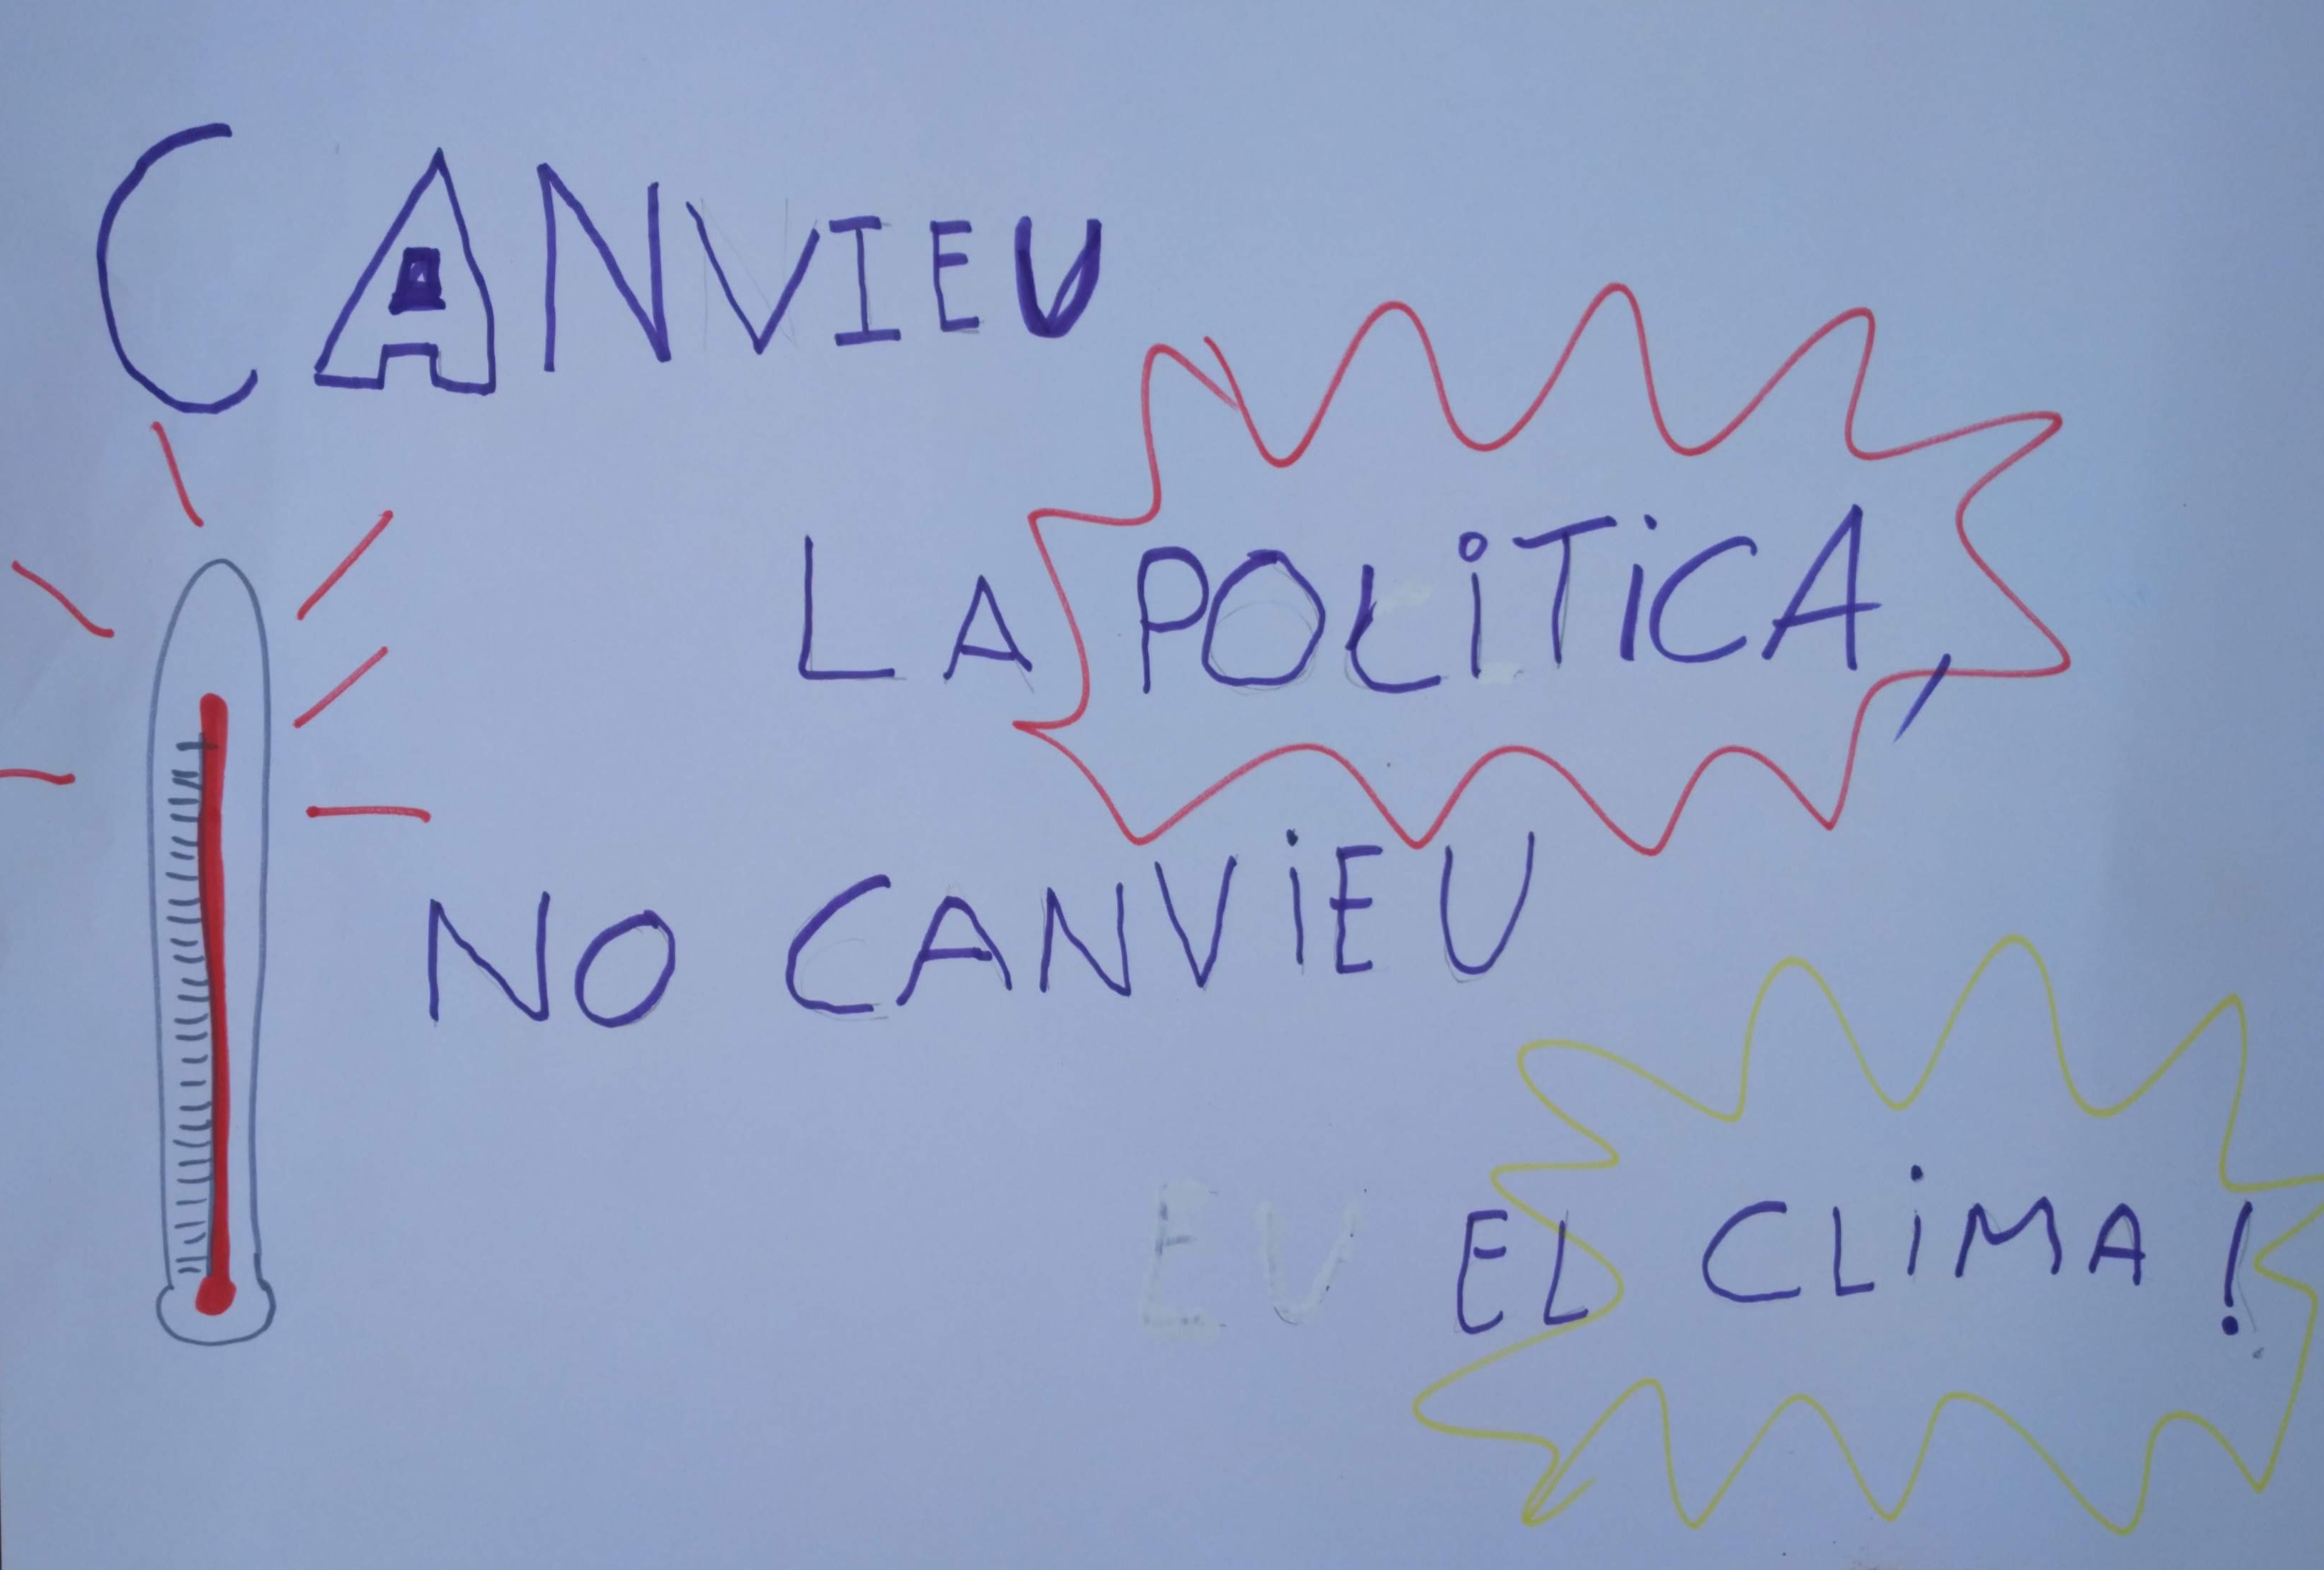 CANVIEU
LA POLITICA,
NO CANVIEU
EL CLIMA!